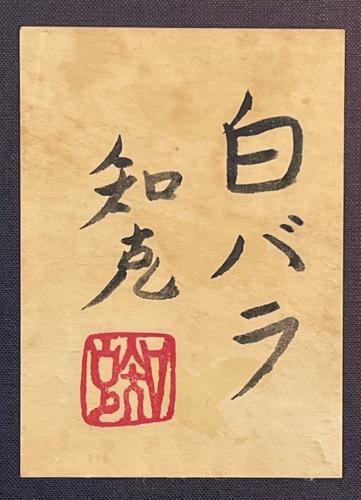 白バラ
知克